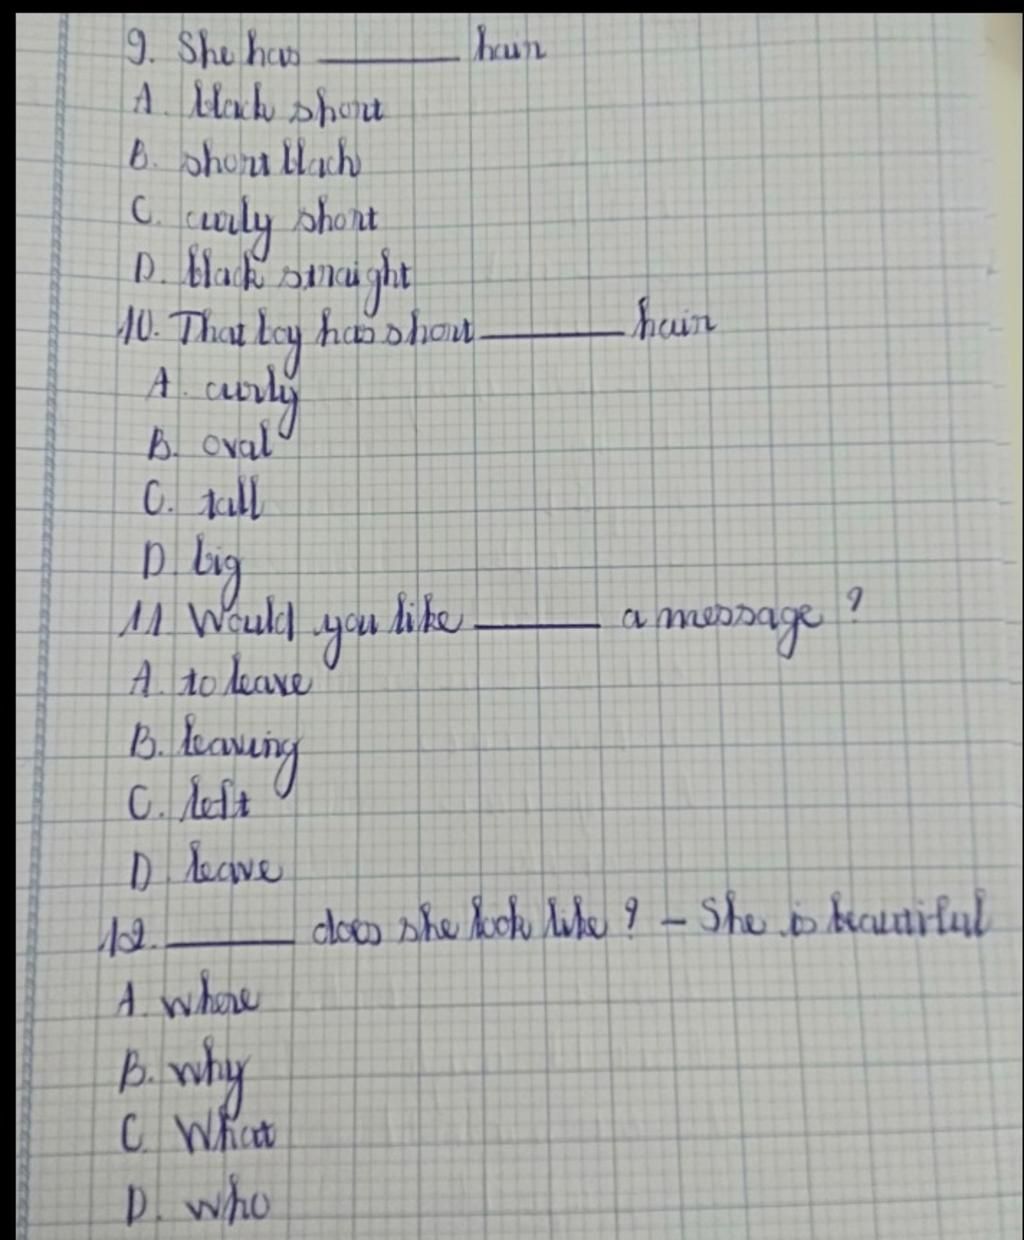 9. She has ______ hair
A. black short
B. short black
C. curly short
D. black straight
10. That boy has short ______ hair
A. curly
B. oval
C. tall
D. big
11. Would you like ______ a message ?
A. to leave
B. leaving
C. left
D. leave
12. ______ does she look like ? - She is beautiful
A. where
B. why
C. What
D. who